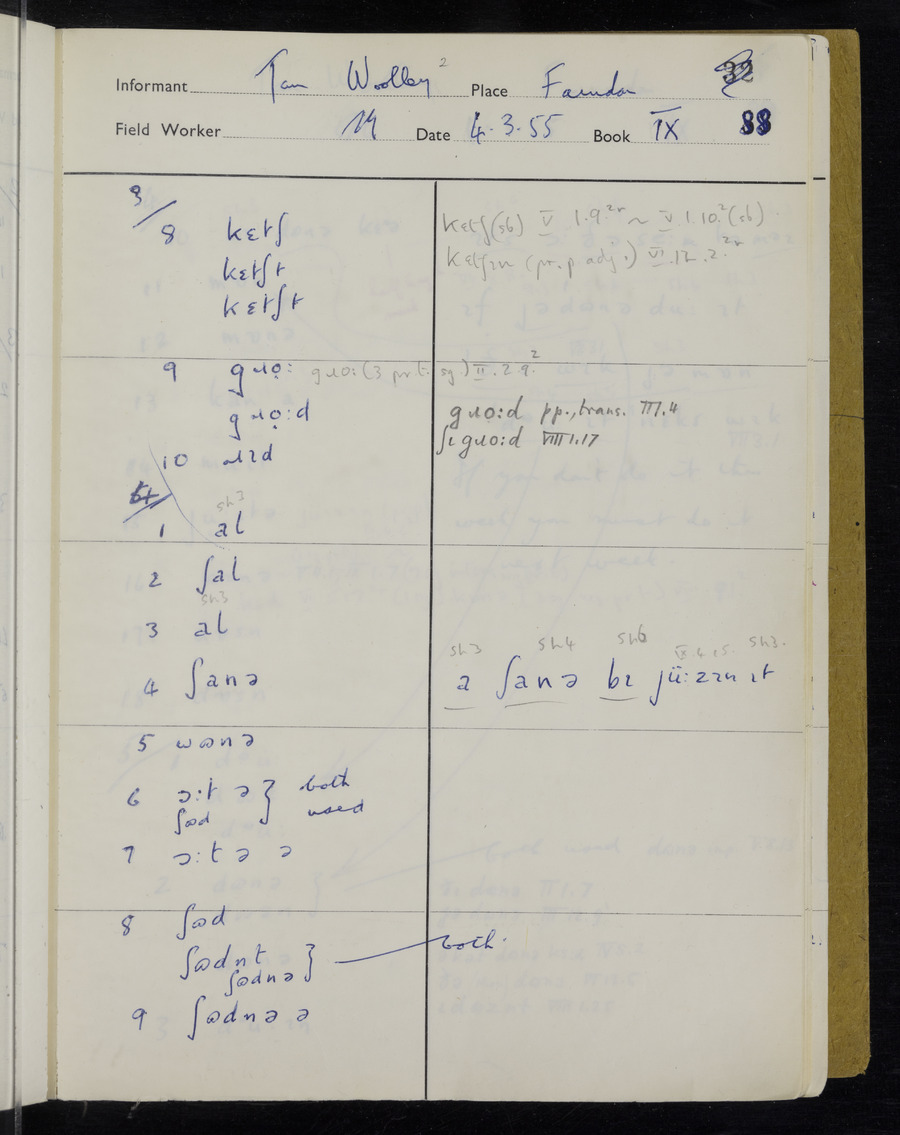 Informant Tom Woolley 2 Place Farndon 32
Field Worker Date 4.3.55 Book IX 88
3/
8 kɛtʃ kɛtʃ (sb) V 1.9.2r ~ V.1.10.2 (sb)
kɛtʃt kɛtʃɪn (pr. p. adj.) VI.12.2.2r
kɛtʃt
9 gɹọ: gɹo: (3 pr.t. sg.) II.2.9.2
gɹọ:d gɹo:d pp., trans. III.4
ʃɪ gɹo:d VIII 1.17
10 ɹɪd
4/
sh3
1 al
2 ʃal
sh3
3 al
sh3 sh4 sh6 IX.4.15. sh3.
4 ʃanə a ʃanə bɪ jü:zɪn ɪt
5 wɒnə
6 ɔ:t ə } both
ʃɷd used
7 ɔ:t ə ə
8 ʃɷd
ʃɷdnt } both.
ʃɷdnə
9 ʃɷdnə ə